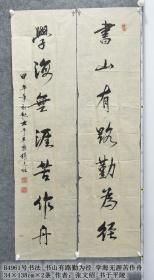 書山有路勤為徑
學海無涯苦作舟
B4961号书法 书山有路勤为径 学海无涯苦作舟
34×138cm×2条 作者：张文绍 书于平陵